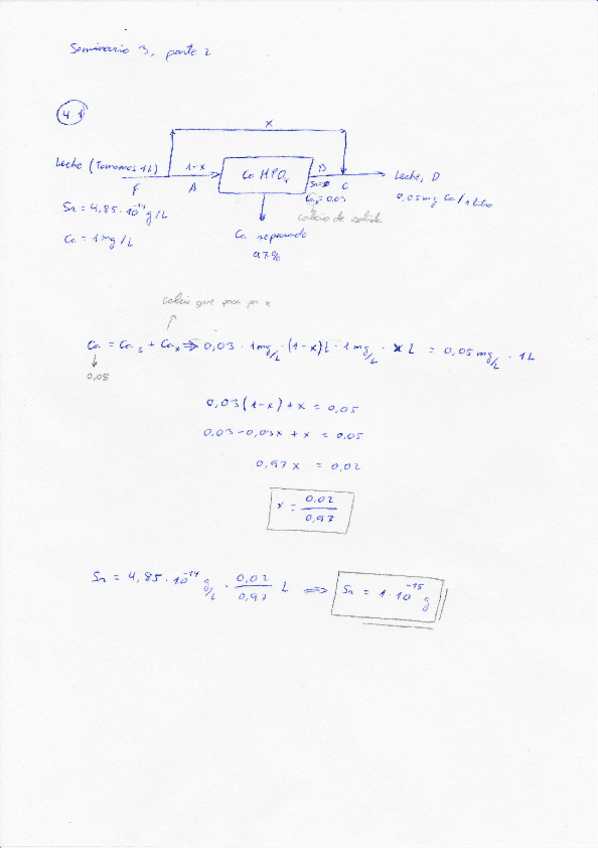 Seminario 3, parte 2
4.1
x
Leche (Tomamos 1L)
1-x
Ca HPO₄
B
Leche, D
F
A
Sr=0
C
Ca = 0,03
0,05 mg Ca/1 litro
Sr = 4,85·10⁻¹⁴ g/L
calcio de salida
Ca = 1 mg/L
Ca separado
97%
calcio que pasa por x
Ca = Ca₃ + Caₓ ⇒ 0,03 · 1 mg/L · (1-x) L · 1 mg/L · x L = 0,05 mg/L · 1L
0,05
0,03(1-x) + x = 0,05
0,03 - 0,03x + x = 0,05
0,97 x = 0,02
x = 0,02/0,97
Sr = 4,85·10⁻¹⁴ g/L · 0,02/0,97 L ⇒ Sr = 1·10⁻¹⁵ g